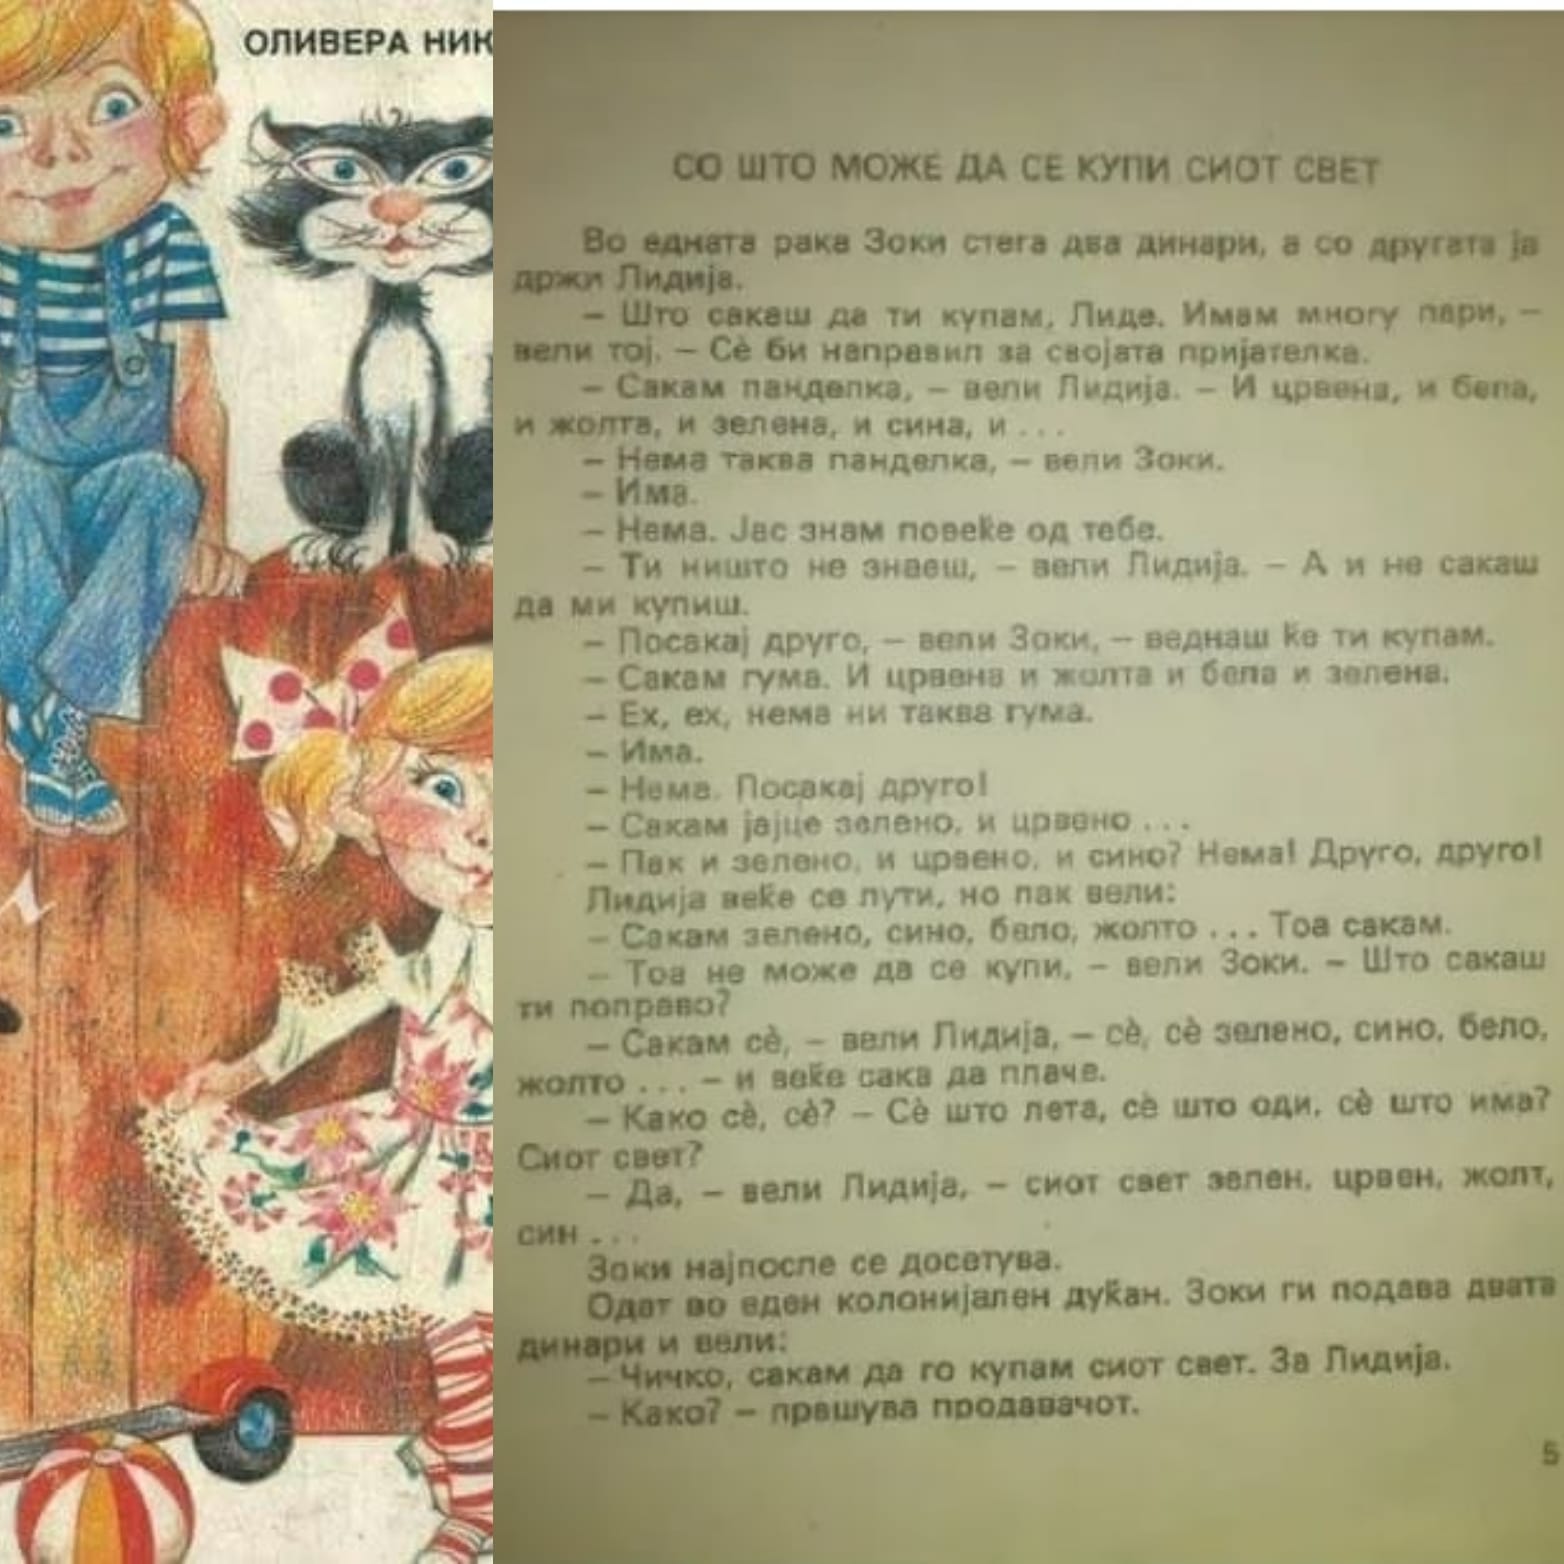 ОЛИВЕРА НИК
СО ШТО МОЖЕ ДА СЕ КУПИ СИОТ СВЕТ
Во едната рака Зоки стега два динари, а со другата ја
држи Лидија.
– Што сакаш да ти купам, Лиде. Имам многу пари, –
вели тој. – Сѐ би направил за својата пријателка.
– Сакам панделка, – вели Лидија. – И црвена, и бела,
и жолта, и зелена, и сина, и ...
– Нема таква панделка, – вели Зоки.
– Има.
– Нема. Јас знам повеќе од тебе.
– Ти ништо не знаеш, – вели Лидија. – А и не сакаш
да ми купиш.
– Посакај друго, – вели Зоки, – веднаш ќе ти купам.
– Сакам гума. И црвена и жолта и бела и зелена.
– Ех, ех, нема ни таква гума.
– Има.
– Нема. Посакај друго!
– Сакам јајце зелено, и црвено ...
– Пак и зелено, и црвено, и сино? Нема! Друго, друго!
Лидија веќе се лути, но пак вели:
– Сакам зелено, сино, бело, жолто ... Тоа сакам.
– Тоа не може да се купи, – вели Зоки. – Што сакаш
ти поправо?
– Сакам сѐ, – вели Лидија, – сѐ, сѐ зелено, сино, бело,
жолто ... – и веќе сака да плаче.
– Како сѐ, сѐ? – Сѐ што лета, сѐ што оди, сѐ што има?
Сиот свет?
– Да, – вели Лидија, – сиот свет зелен, црвен, жолт,
син ...
Зоки најпосле се досетува.
Одат во еден колонијален дуќан. Зоки ги подава двата
динари и вели:
– Чичко, сакам да го купам сиот свет. За Лидија.
– Како? – прашува продавачот.
5